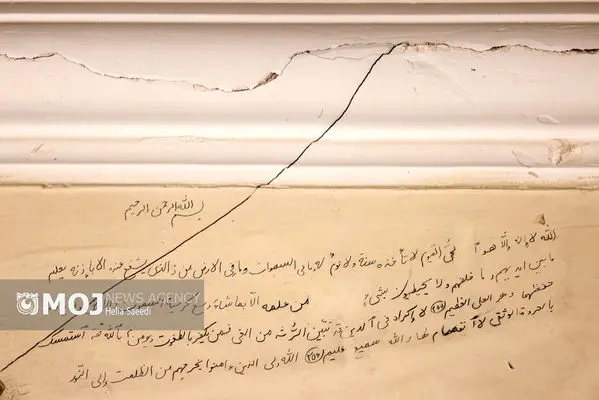 بسم الله الرحمن الرحیم
الله لا إله إلّا هو الحیّ القیوم لا تأخذه سنة ولا نومٌ له ما فی السموات وما فی الارض من ذا الذی یشفع عنده الا باذنه یعلم
ما بین ایدیهم و ما خلفهم ولا یحیطون بشیءٍ من علمه الّا بما شاء وسع
حفظهما و هو العلی العظیم (۲۵۵) لا إکراه فی الدین قد تبیّن الرّشد من الغی فمن یکفر بالطغوت ویومن بالله فقد استمسک
بالعروة الوثقی لا انفصام لها و الله سمیع علیم (۲۵۶) الله ولی الذین ءامنوا یخرجهم من الظلمت إلی النّور
MOJ NEWS AGENCY
Helia Saeedi